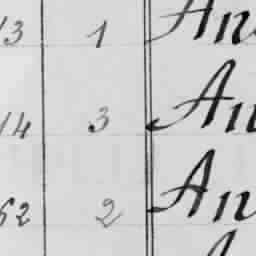 13 1 An
14 3 An
62 2 An